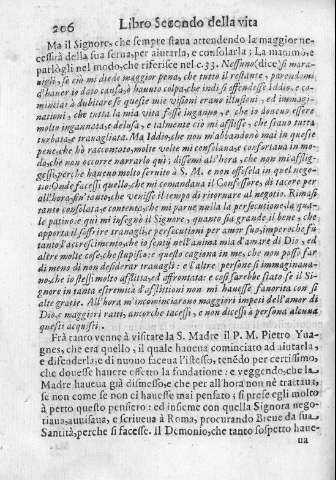 206 Libro Secondo della vita
Ma il Signore, che sempre staua attendendo la maggior ne-
cessità della sua serua, per aiutarla, e consolarla; La animò, e
parlogli nel modo, che riferisce nel c.33. Nessuno (dice) si mara-
uigli, se ciò mi diede maggior pena, che tutto il restante, parendomi
d'hauer io dato causa, & hauuto colpa, che indi si offendesse Iddio, e co-
minciai à dubitare se queste mie visioni erano illusioni, ed immagi-
nationi, che tutta la mia vita fosse inganno, e che io doueuo essere
molto ingannata, e delusa, e talmente ciò mi afflisse, che stauo tutta
turbata, e trauagliata. Ma Iddio, che non mi abbandonò mai in queste
pene, che hò raccontate, molte volte mi consolaua, e confortaua in mo-
do, che non occorre narrarlo quì; dissemi all'hora, che non mi afflig-
gessi, perche haueuo molto seruito à S. M. e non offesola in quel nego-
tio: Onde facessi quello, che mi comandaua il Confessore, di tacere per
all'hora, fin' tanto, che venisse il tempo di ritornare al negotio. Rimasi
tanto consolata, e contenta, che mi parue nulla la persecutione, la qua-
le patiuo: e quì mi insegnò il Signore, quanto sia grande il bene, che
apporta il soffrire trauagli, e persecutioni per amor suo, imperoche fù
tanto l'accrescimento, che io sentij nell'anima mia d'amore di Dio, ed
altre molte cose, che stupisco: e questo cagiona in me, che non posso far
di meno di non desiderar trauagli: e l'altre persone si immaginaua-
no, che io stessi molto afflitta, ed affrontata: e così sarebbe stato se il Si-
gnore in tanta estremità d'afflittioni non mi hauesse fauorita con sì
alte gratie. All'hora m'incominciarono maggiori impeti dell'amor di
Dio, e maggiori ratti, ancorche tacessi, e non dicessi a persona alcuna
questi acquisti.
Frà tanto venne à visitare la S. Madre il P. M. Pietro Yua-
gnes, che era quello, il quale haueua cominciato ad aiutarla,
e difenderla; e di nuouo faceua l'istesso, tenẽdo per certissimo,
che douesse hauere effetto la fundatione: e veggendo, che la
Madre haueua già dismesso, e che per all'hora non nè trattaua,
se non come se non ci hauesse mai pensato; si prese egli molto
à petto questo pensiero: ed insieme con quella Signora nego-
tiaua, auuisaua, e scriueua à Roma, procurando Breue da sua
Santità, perche si facesse. Il Demonio, che tanto sospetto haue-
ua